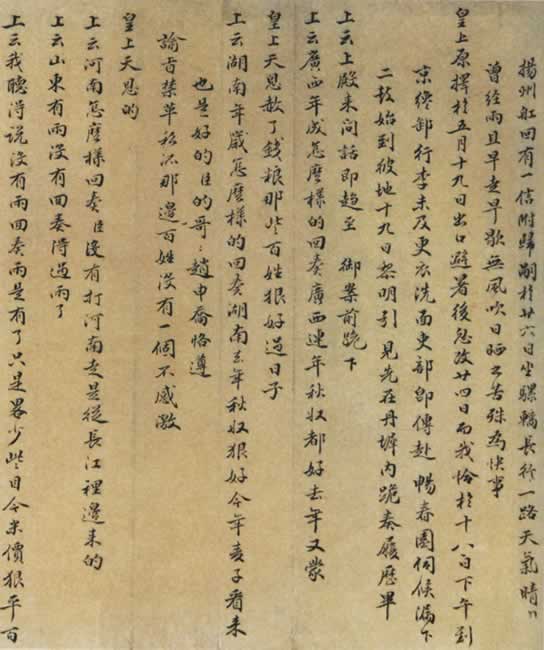 揚州舡回有一信附歸嗣於廿六日坐騾轎長行一路天氣晴
曾經雨且早走早歇無風吹日晒之苦殊為快事
皇上原擇於五月十九日出口避暑後忽改廿四日而我恰於十八日下午到
京纔卸行李未及更衣洗面吏部即傳赴 暢春園伺候漏下
二鼓始到彼地十九日黎明引 見先在丹墀內跪奏履歷畢
上云上殿来問話即趨至 御案前跪下
上云廣西年成怎麼樣的回奏廣西連年秋收都好去年又蒙
皇上天恩赦了錢粮那些百姓狠好過日子
上云湖南年歲怎麼樣的回奏湖南去年秋收狠好今年麦子看来
也是好的臣的哥々趙申喬恪遵
諭旨禁革私派那邊百姓沒有一個不感激
皇上天恩的
上云河南怎麼樣回奏臣沒有打河南走是從長江裡邊来的
上云山東有雨沒有回奏得過雨了
上云我聽得說沒有雨回奏雨是有了只是畧少些目今米價狠平百